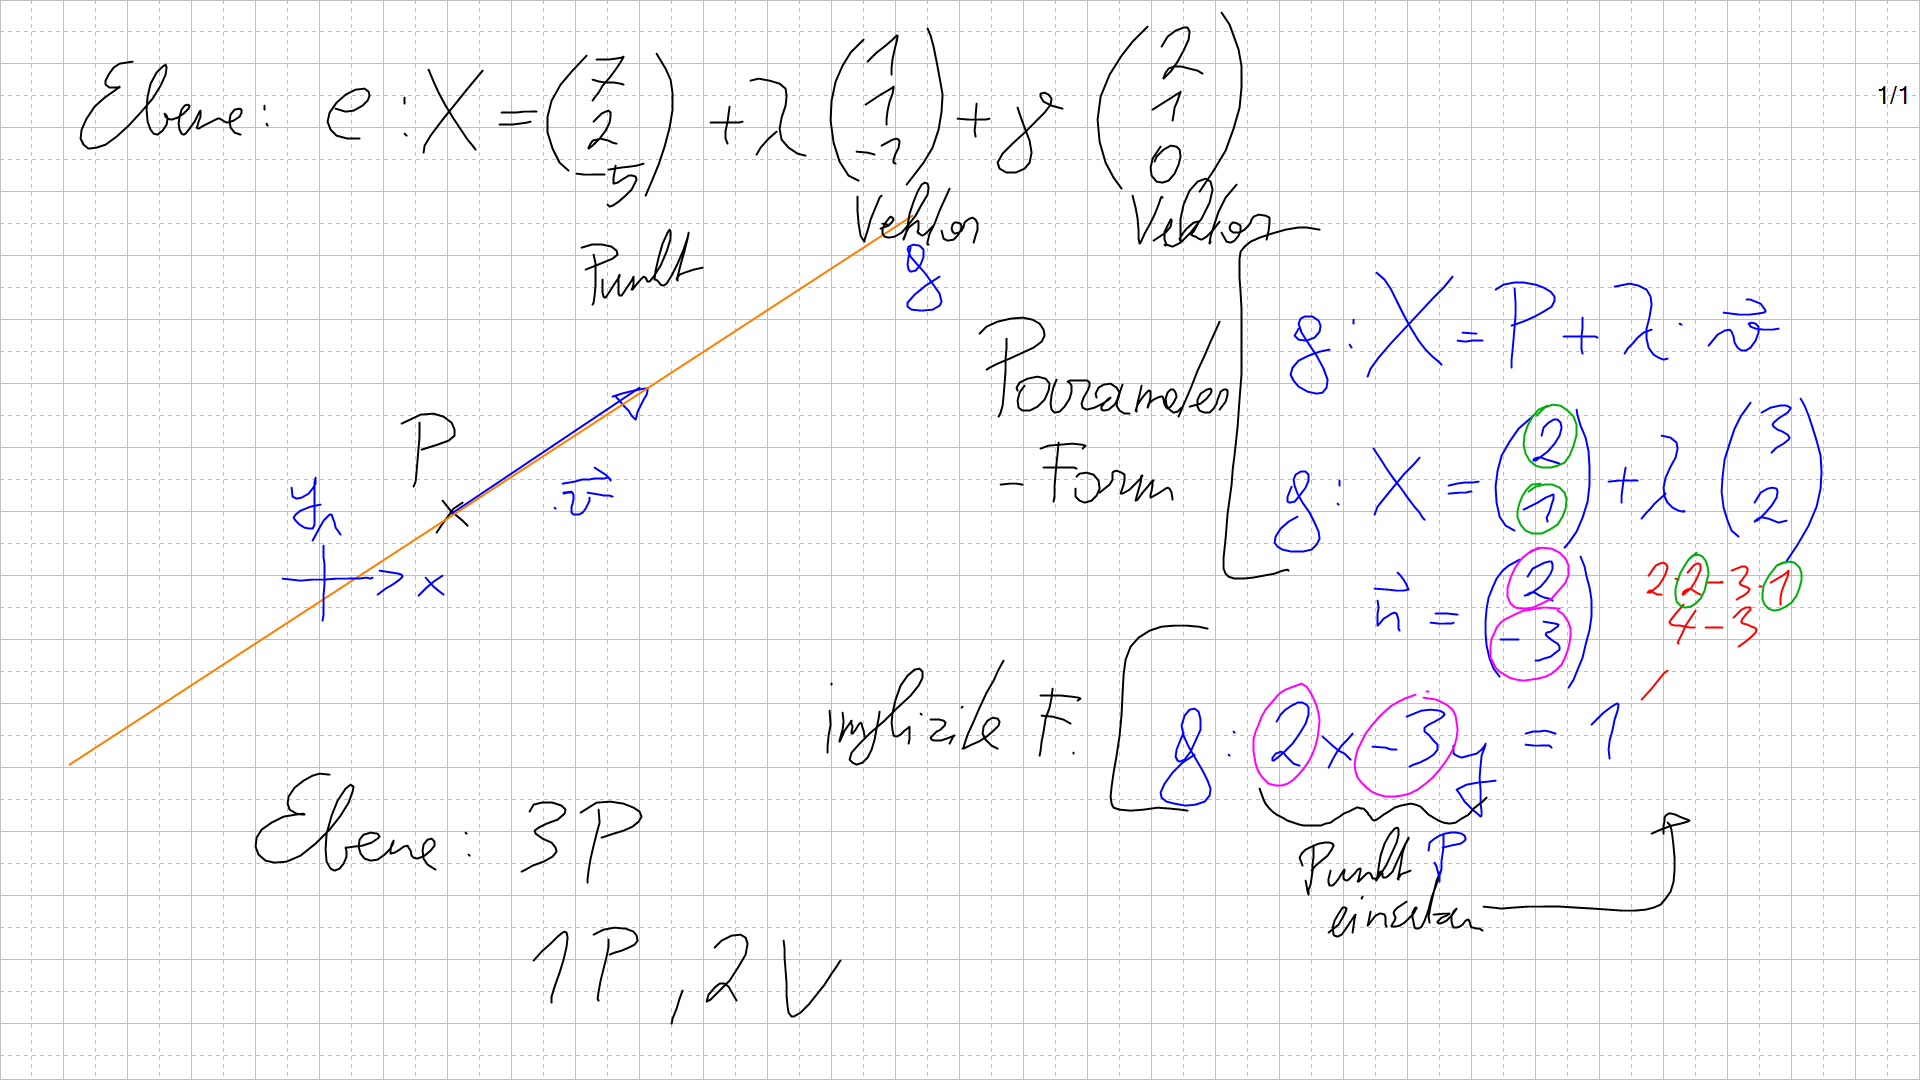 Ebene: e: X = (7 2 -5) + λ (1 1 -1) + γ (2 1 0)
1/1
Punkt
Vektor
Vektor
g
P
v
y
x
Parameter
- Form
g: X = P + λ · v
g: X = (2 1) + λ (3 2)
n = (2 -3)
2·2-3·1
4-3
implizite F.
g: 2x-3y = 1
Punkt P
einsetzen
Ebene: 3P
1P, 2V